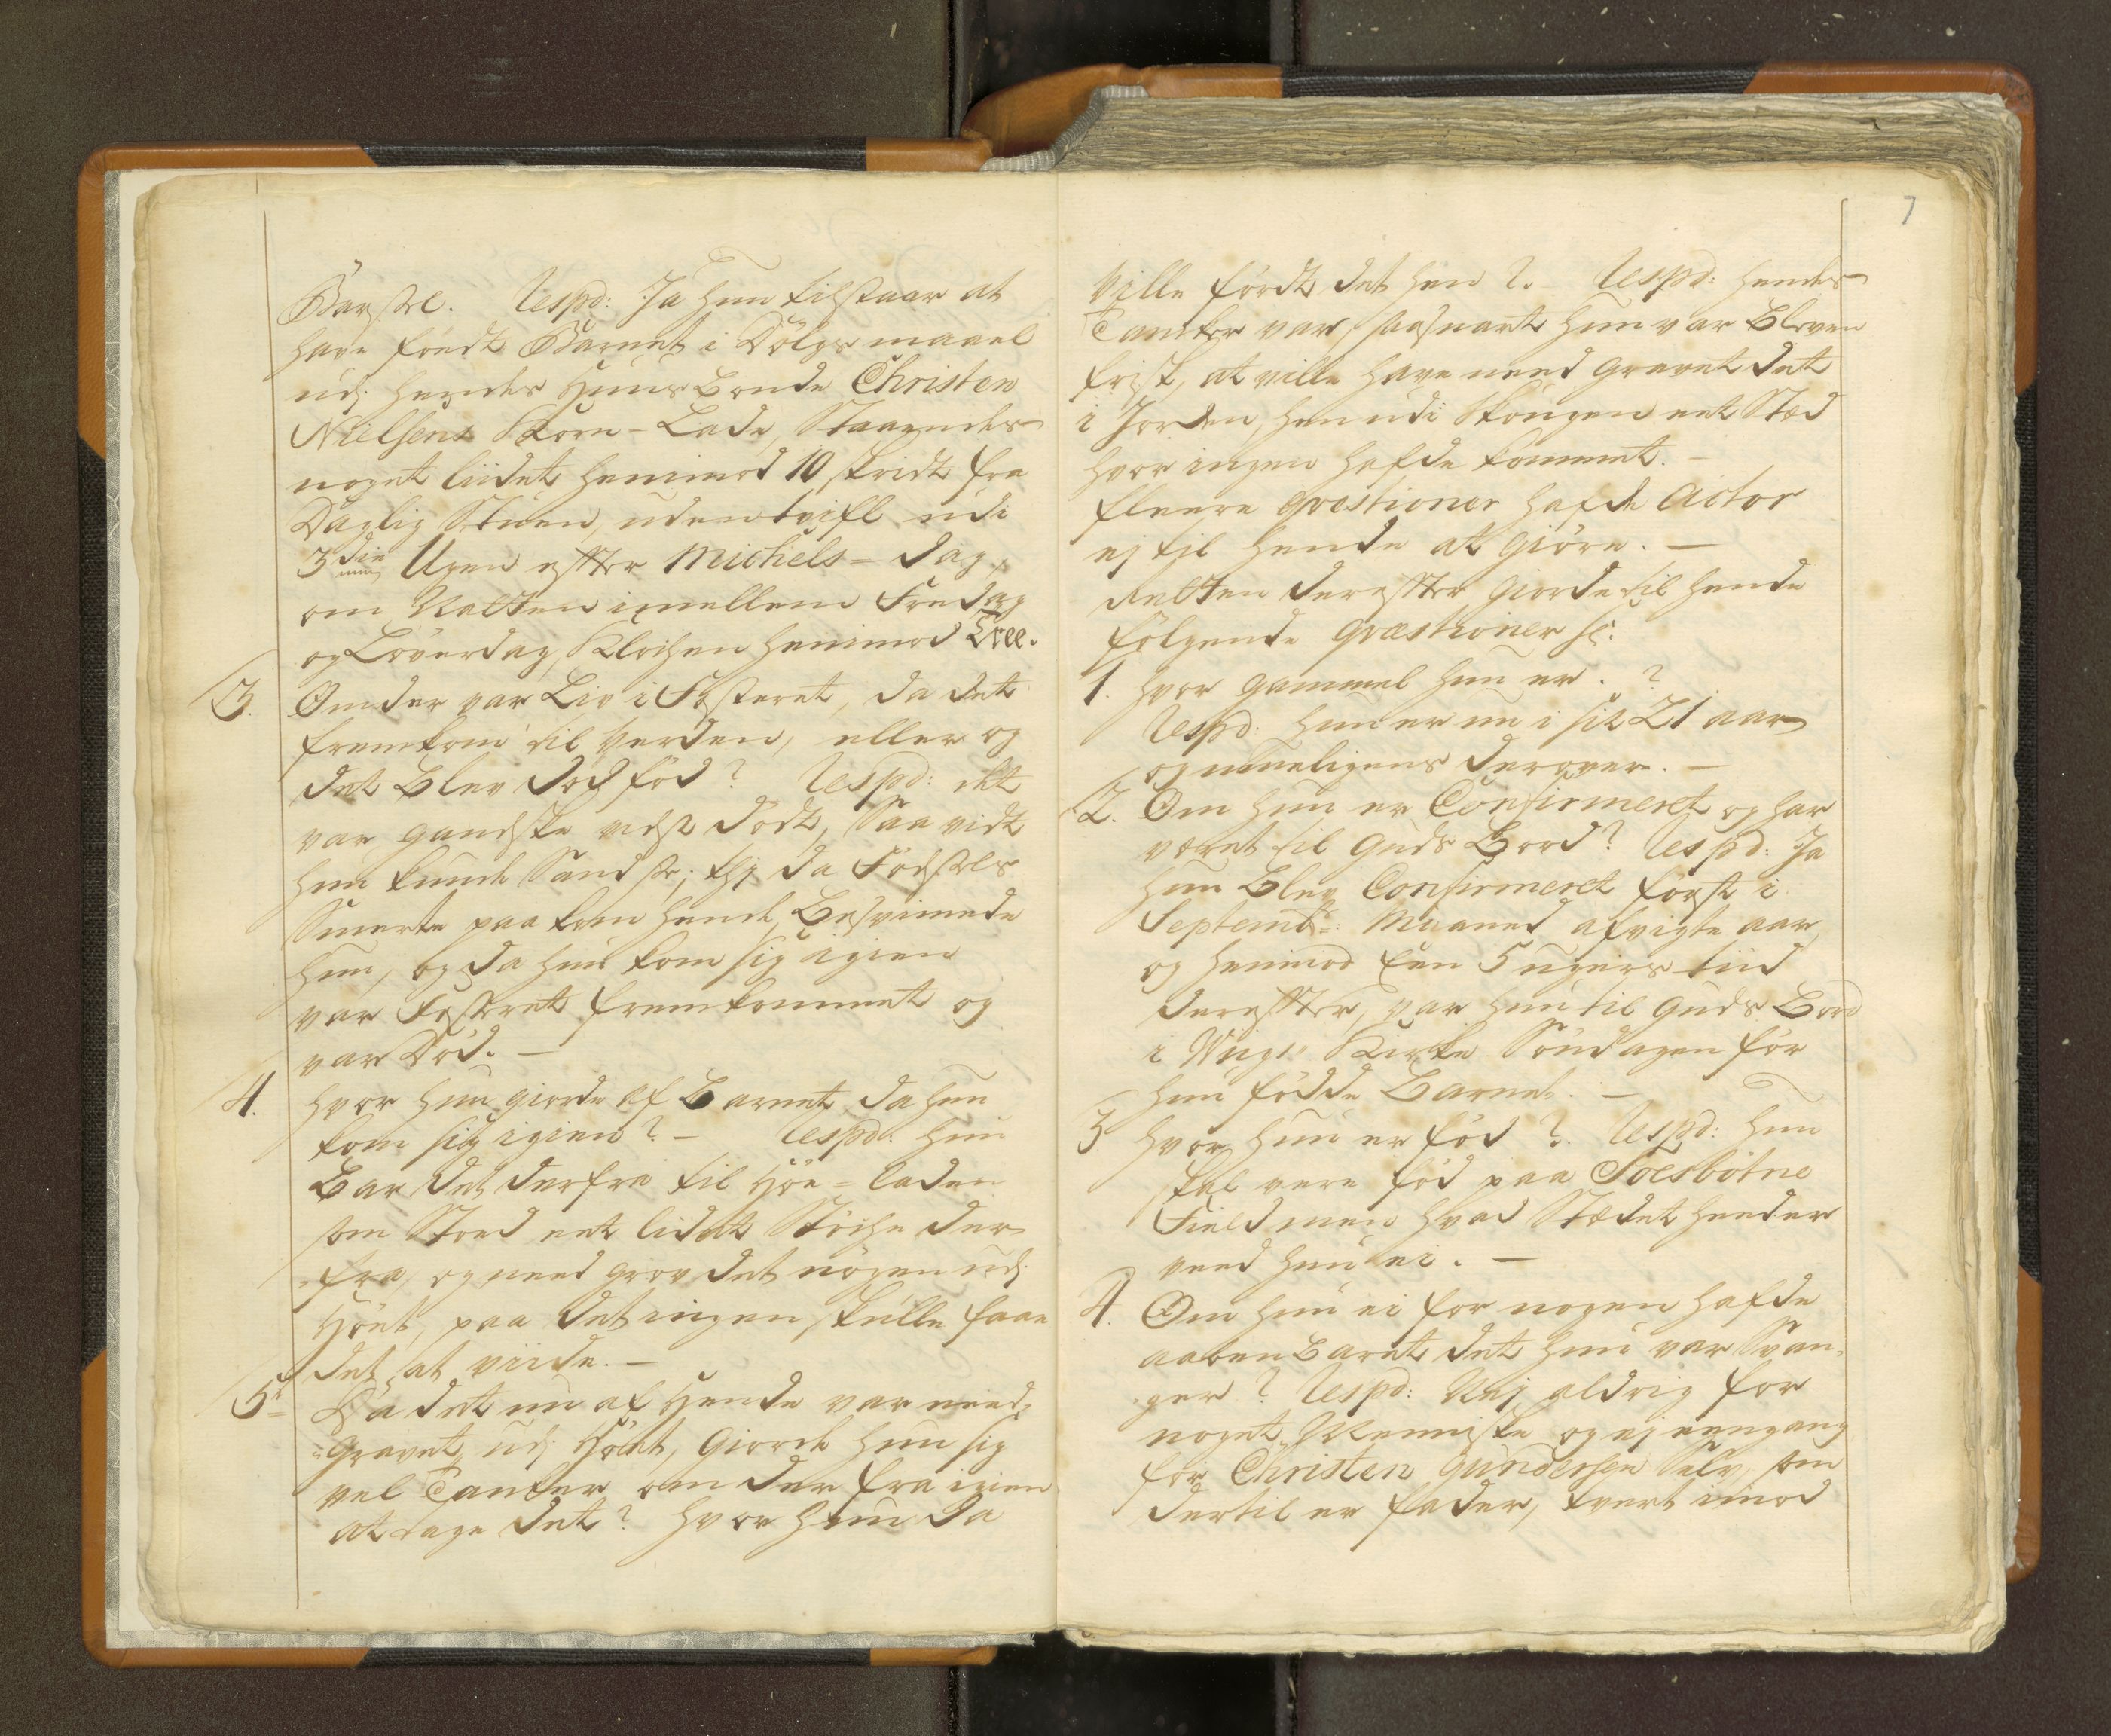 Barsel. Respd: Ja hun tilstaar at
have fondt Barnet i Dølgsmaael
udj hendes Huusbonde Christen
Nielsens Korn-Lade, Staaendes
noget liidet henimod 10 skridt fra
Daglig Stuen, uden tvifl udi
3die Ugen efter Michels-dag,
om Natten imellem Fredag
og Løverdag, Klochen henimod
3. Om der var Liv i Fosteret, da det
fremkom til Verden, eller og
det blev død fød? Respd: det
var gandske vist dødt, Saa vidt
hun kunde Sandse; thj da Fødsels
Smerte paakom hende, besvimede
hun, og da hun kom sig igien
var Fosteret fremkommet og
var Død. —
4. Hvor hun giorde af Barnet da hun
kom sig igien? — Respd: hun
bar det derfra til Høe=laden
som Stoed eet lidet Støche der=
=fra, og need grov det nogen udj
Høet, paa det ingen skulle faae
det at viide. —
5. Da det nu af Hende var need=
=gravet udj Høet, giorde hun sig
vel Tanker om der fra igien
at tage det? Hvor hun da
7
ville førdt det hen? Respd: hendes
Tanker var, saasnart hun var bleven
frisk, at ville have need gravet det
i Jorden, hen udi Skougen eet Stæd
hvor ingen hafde kommet. —
fleere qvæstioner hafde Actor
ej til hende at giøre. —
Retten derefter giorde til hende
følgende qvæstioner sc:
1. Hvor gammel hun er. ?
Respd: hun er nu i sit 21 aar
og mueligens derover. —
2. Om hun er Confirmeret og har
været til Guds Bord? Respd: Ja
hun blev Confirmeret først i
Septembr: Maaned afvigte aar
og henimod een 5 ugers tiid
derefter, var hun til Guds Bord
i Kirke Søndagen før
hun fødde Barnet. —
3 Hvor hun er fød? Respd: hun
skal være fød paa Soesbøtne
Field men hvad Stædet heeder
veed hun ei. —
4. Om hun ei for nogen hafde
aabenbaret det hun var Svan=
ger? Respd: Nej aldrig for
noget Menniske og ej eengang
for Christen Gundersen Selv, som
dertil er fader, tvert imod